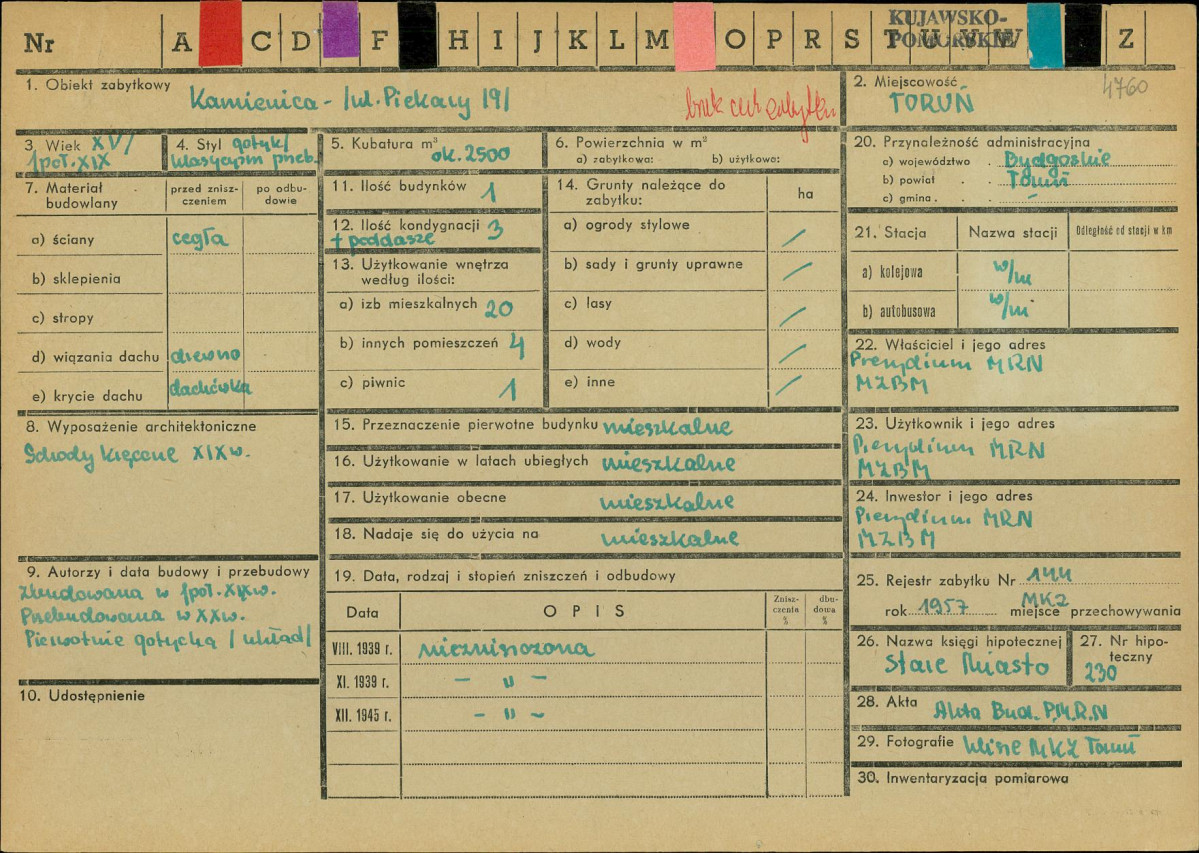 Nr A C D F H I J K L M O P R S T U V W Z
KUJAWSKO-
POMORSKIE
1. Obiekt zabytkowy Kamienica - /ul. Piekary 19/
brak cech zabytku
2. Miejscowość 4760
TORUŃ
3. Wiek XV/
1poł. XIX
4. Styl gotyk/
klasycyzm przeb.
5. Kubatura m³
ok. 2500
6. Powierzchnia w m²
a) zabytkowa: b) użytkowa:
7. Materiał budowlany
przed zniszczeniem
po odbudowie
a) ściany cegła
b) sklepienia
c) stropy
d) wiązania dachu drewno
e) krycie dachu dachówka
8. Wyposażenie architektoniczne
Schody kręcone XIX w.
9. Autorzy i data budowy i przebudowy
Zbudowana w 1poł. XIX w.
Przebudowana w XX w.
Pierwotnie gotycka / układ/
10. Udostępnienie
11. Ilość budynków 1
12. Ilość kondygnacji 3
+ poddasze
13. Użytkowanie wnętrza
według ilości:
a) izb mieszkalnych 20
b) innych pomieszczeń 4
c) piwnic 1
14. Grunty należące do
zabytku:
ha
a) ogrody stylowe /
b) sady i grunty uprawne /
c) lasy /
d) wody /
e) inne /
15. Przeznaczenie pierwotne budynku mieszkalne
16. Użytkowanie w latach ubiegłych mieszkalne
17. Użytkowanie obecne mieszkalne
18. Nadaje się do użycia na mieszkalne
19. Data, rodzaj i stopień zniszczeń i odbudowy
Data OPIS Zniszczenia % dbudowa %
VIII. 1939 r. niezniszczona
XI. 1939 r. - " -
XII. 1945 r. - " -
20. Przynależność administracyjna
a) województwo Bydgoskie
b) powiat Toruń
c) gmina -
21. Stacja Nazwa stacji Odległość od stacji w km
a) kolejowa w/m
b) autobusowa w/m
22. Właściciel i jego adres
Prezydium MRN
MZBM
23. Użytkownik i jego adres
Prezydium MRN
MZBM
24. Inwestor i jego adres
Prezydium MRN
MZBM
25. Rejestr zabytku Nr 144
rok 1957 MKZ miejsce przechowywania
26. Nazwa księgi hipotecznej
Stare Miasto
27. Nr hipoteczny
230
28. Akta Akta Bud. P.M.R.N
29. Fotografie klisze MKZ Toruń
30. Inwentaryzacja pomiarowa